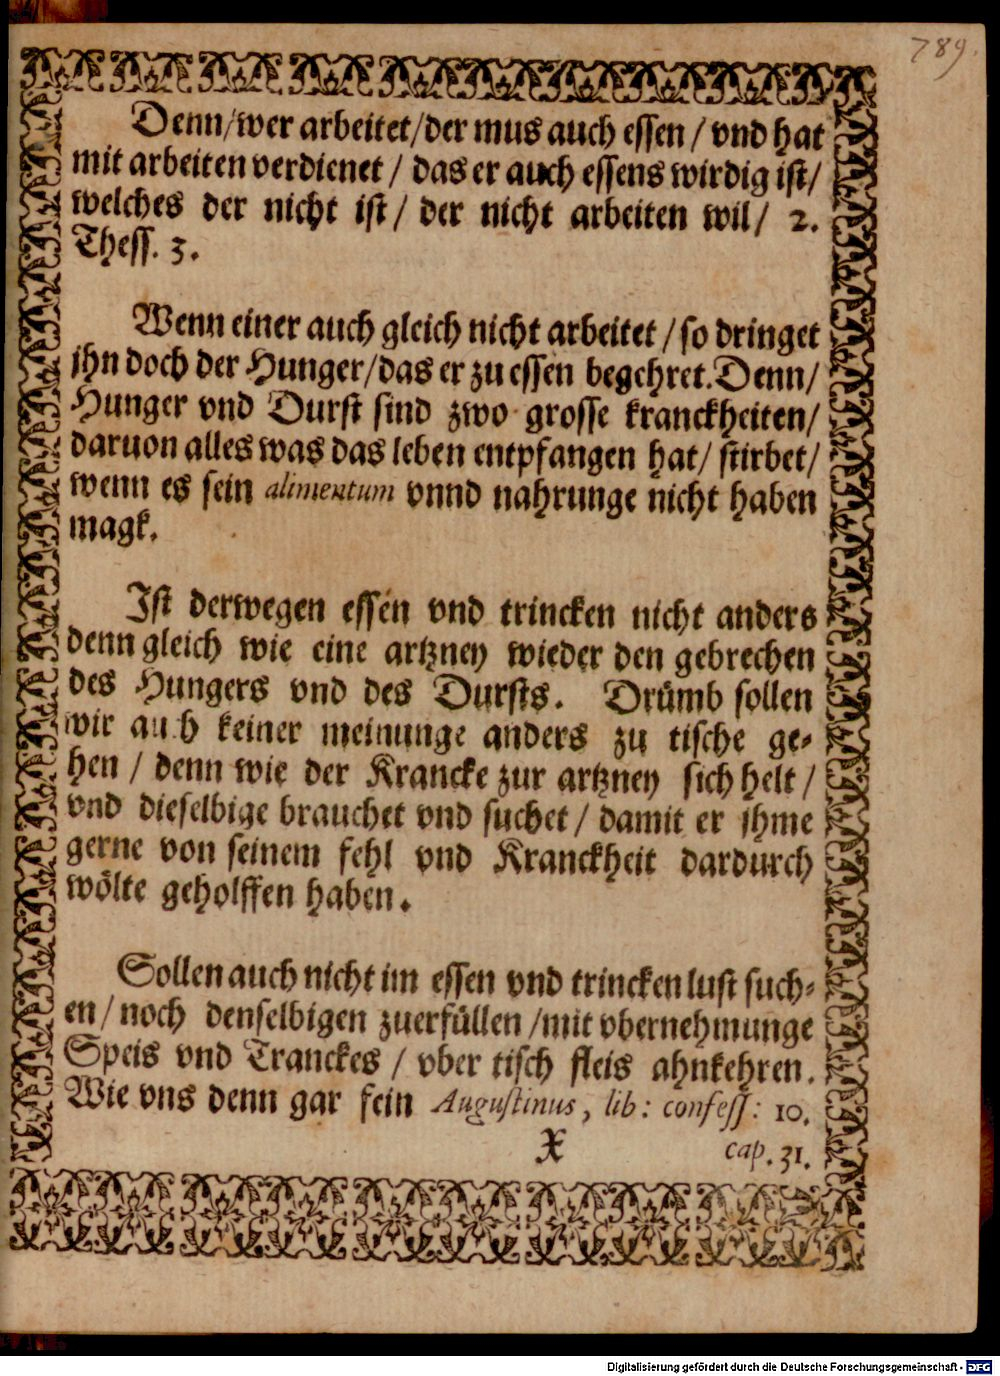 789.
Denn/wer arbeitet/der mus auch essen / vnd hat
mit arbeiten verdienet / das er auch essens wirdig ist/
welches der nicht ist / der nicht arbeiten wil / 2.
Thess. 3.
Wenn einer auch gleich nicht arbeitet / so dringet
jhn doch der Hunger/das er zu essen begehret. Denn/
Hunger vnd Durst sind zwo grosse kranckheiten/
daruon alles was das leben entpfangen hat/ stirbet/
wenn es sein alimentum vnnd nahrunge nicht haben
magk.
Ist derwegen essen vnd trincken nicht anders
denn gleich wie eine artzney wieder den gebrechen
des Hungers vnd des Dursts. Drümb sollen
wir auch keiner meinunge anders zu tische ge-
hen / denn wie der Krancke zur artzney sich helt /
vnd dieselbige brauchet vnd suchet / damit er jhme
gerne von seinem fehl vnd Kranckheit dardurch
wölte geholffen haben.
Sollen auch nicht im essen vnd trincken lust such-
en / noch denselbigen zuerfüllen /mit vbernehmunge
Speis vnd Tranckes / vber tisch fleis ahnkehren.
Wie vns denn gar fein Augustinus, lib: confess: 10.
X cap. 31.
Digitalisierung gefördert durch die Deutsche Forschungsgemeinschaft - DFG